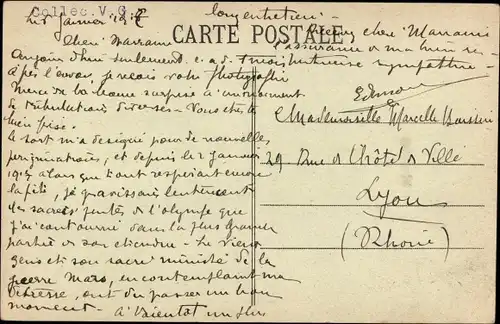 Collec. V. G.
CARTE POSTALE
janvier 1917
Chère Marraine
Aujourd'hui seulement c.a.d. 1 mois
après l'envoi, je reçois votre photographie
Merci de la bonne surprise
de tribulations diverses - Vous êtes
bien prise.
Le sort m'a désigné pour de nouvelles
pérégrinations, et depuis le 2 janvier
1917 alors que tout respirait encore
la fête, je gravissais lentement
les sacrés pentes de l'olympe que
j'ai contourné dans la plus grande
partie de son étendue - Le vieux
Zeus et son sacré ministre de la
guerre Mars, en contemplant ma
détresse, ont dû passer un bon
moment. A bientôt un plus
long entretien -
Recevez chère Marraine
l'assurance de ma
sympathie -
Edmond
Mademoiselle Marcelle
29 Rue de l'Hôtel de Ville
Lyon
(Rhône)